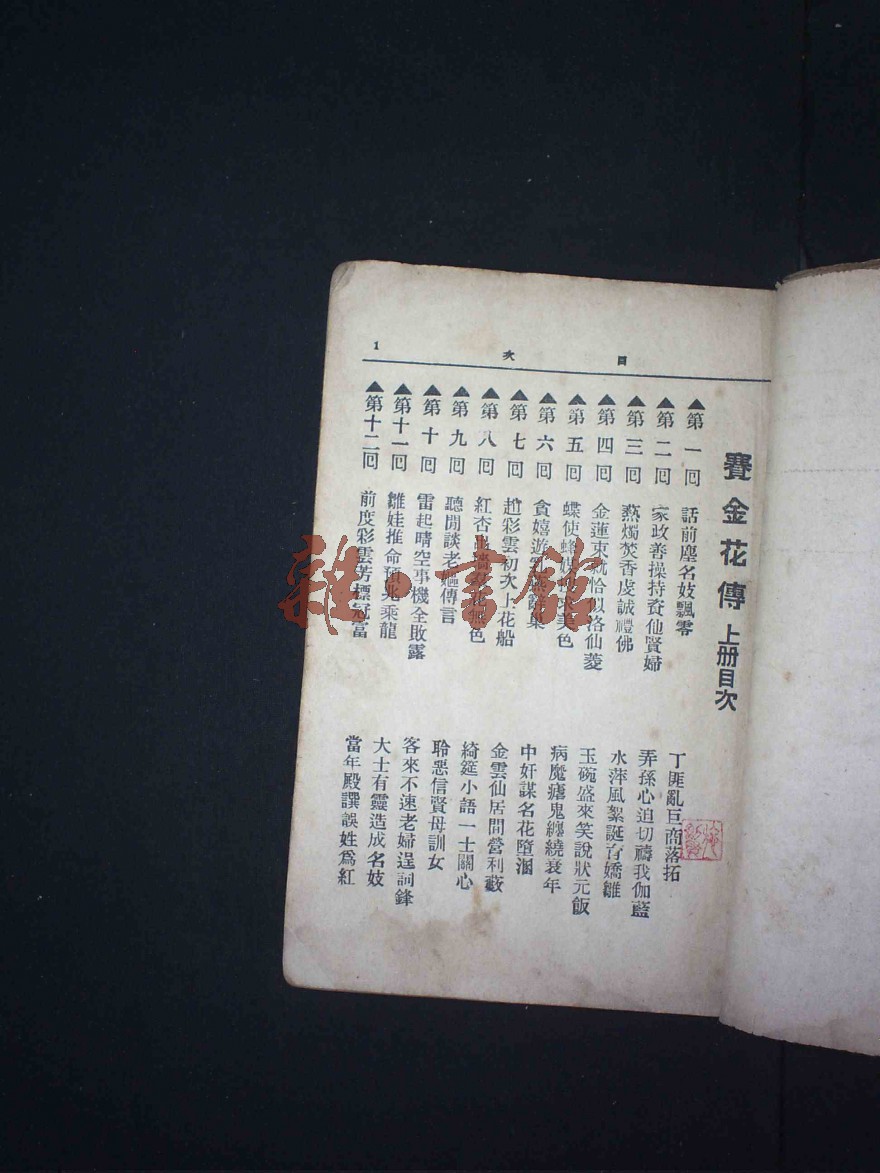 目次
1
賽金花傳 上册目次
▲第一回 話前塵名妓飄零 丁匪亂巨商落拓
▲第二回 家政善操持資仙賢婦 弄孫心迫切禱我伽藍
▲第三回 燕燭焚香虔誠禮佛 水萍風絮誕育嬌雛
▲第四回 金蓮束就恰似洛仙菱 玉碗盛來笑說狀元飯
▲第五回 蝶使蜂媒 色 病魔瘧鬼纏繞衰年
▲第六回 貪嬉遊 巢 中奸謀名花墮溷
▲第七回 趙彩雲初次上花船 金雲仙居間營利藪
▲第八回 紅杏 牆 色 綺筵小語一士關心
▲第九回 聽閒談老嫗傳言 聆惡信賢母訓女
▲第十回 雷起晴空事機全敗露 客來不速老婦逞詞鋒
▲第十一回 雛娃推命預兆乘龍 大士有靈造成名妓
▲第十二回 前度彩雲芳標冠富 當年殿譔誤姓爲紅
雜·書館